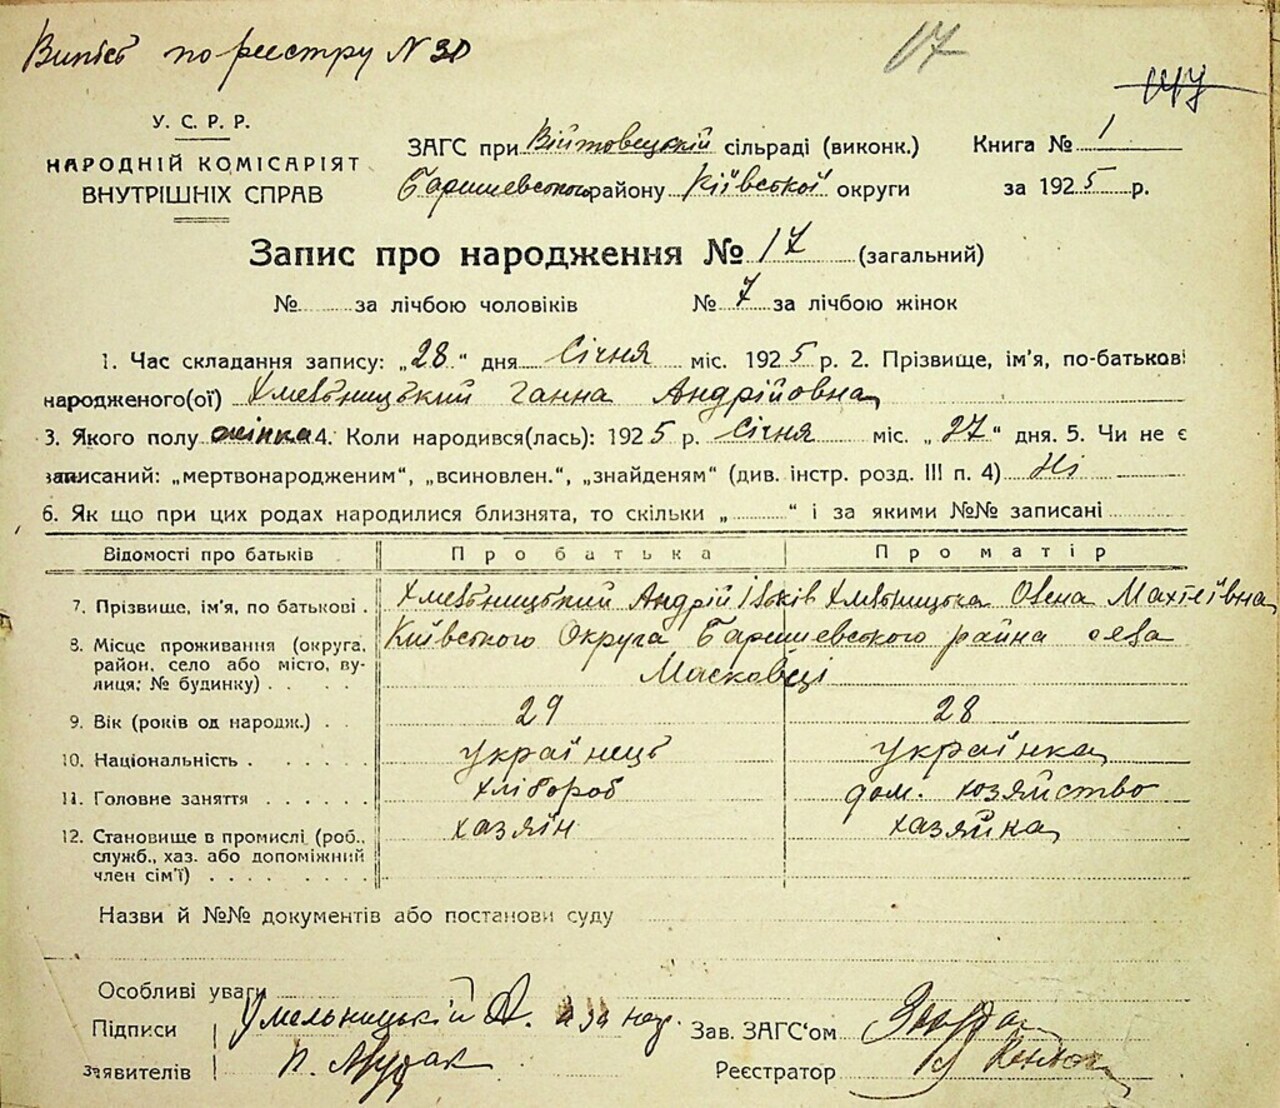 Випись по реєстру N 30
17
У. С. Р. Р.
НАРОДНІЙ КОМІСАРІЯТ
ВНУТРІШНІХ СПРАВ
ЗАГС при Війтовецькій сільраді (виконк.)
Баришевського району Київської округи
Книга № 1
за 1925 р.
Запис про народження № 17 (загальний)
№ за лічбою чоловіків № 7 за лічбою жінок
1. Час складання запису: „28“ дня Січня міс. 1925 р. 2. Прізвище, ім'я, по-батькові
народженого(ої) Хмельницький Ганна Андрійовна
3. Якого полу жінка 4. Коли народився(лась): 1925 р. Січня міс. „27“ дня. 5. Чи не є
записаний: „мертвонародженим“, „всиновлен.“, „знайденям“ (див. інстр. розд. III п. 4) Ні
6. Як що при цих родах народилися близнята, то скільки „ “ і за якими №№ записані
Відомості про батьків Про батька Про матір
7. Прізвище, ім'я, по батькові . Хмельницький Андрій Ільків Хмельницька Олена Махтеївна
8. Місце проживання (округа, Київського Округа Баришевського райна села
район, село або місто, ву- Масковці
лиця; № будинку) . . . .
9. Вік (років од народж.) . . 29 28
10. Національність . . . . . . українець українка
11. Головне заняття . . . . . . хлібороб дом. хозяйство
12. Становище в промислі (роб., хазяїн хазяйка
служб., хаз. або допоміжний
член сім'ї) . . . . . . . .
Назви й №№ документів або постанови суду
Особливі уваги
Підписи Хмельницькій А.
заявителів П.
Зав. ЗАГС'ом
Реєстратор